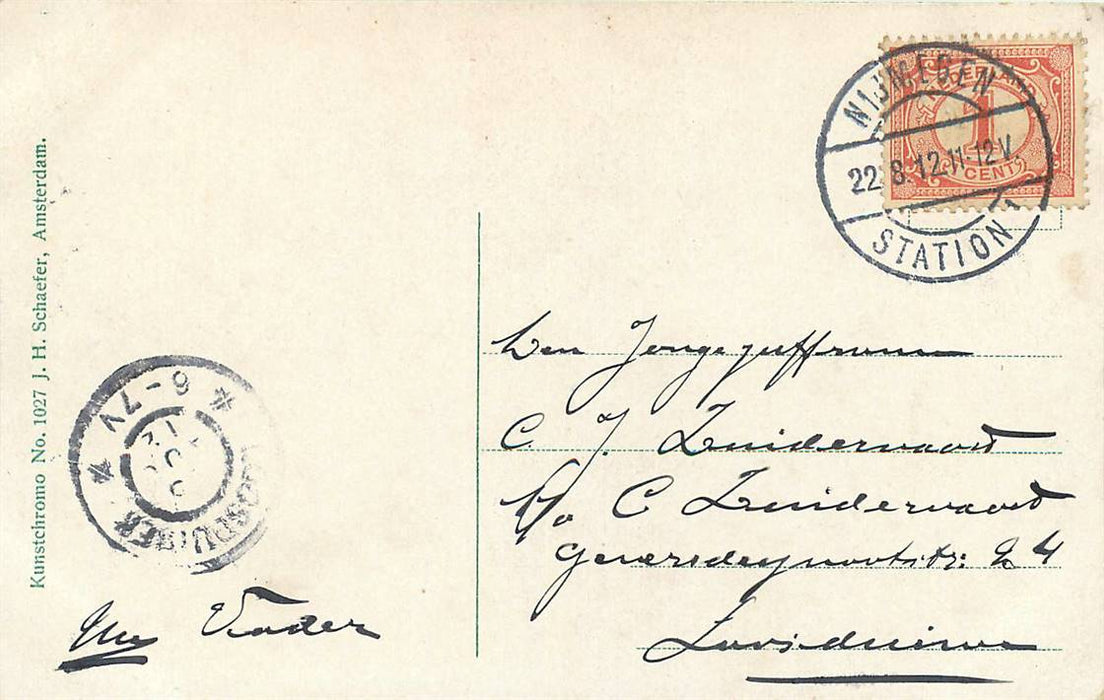 Kunstchromo No. 1027 J. H. Schaefer, Amsterdam.
NEDERLAND
1
CENT
NIJMEGEN
22.8.12.11-12V
STATION 1
6-7V
LOOSDUINEN
Den Jongejuffrouw
C. J. Zuidervaart
p/a C Zuidervaart
Geversdeynootstr: 24
Loosduinen
Uw Vader